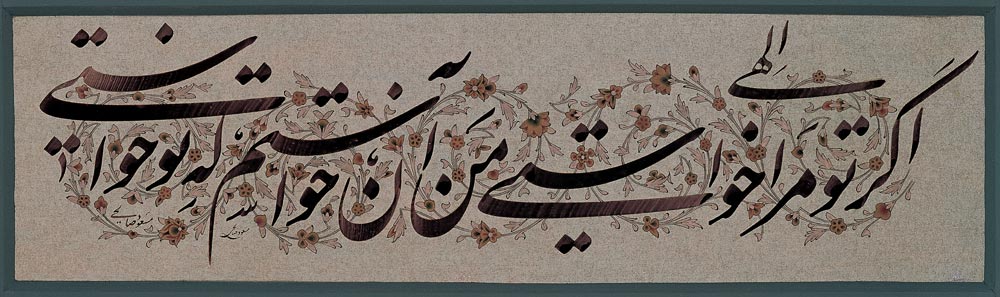 الهی
اگر تو مرا خواستی من آن خواستم که تو خواستی